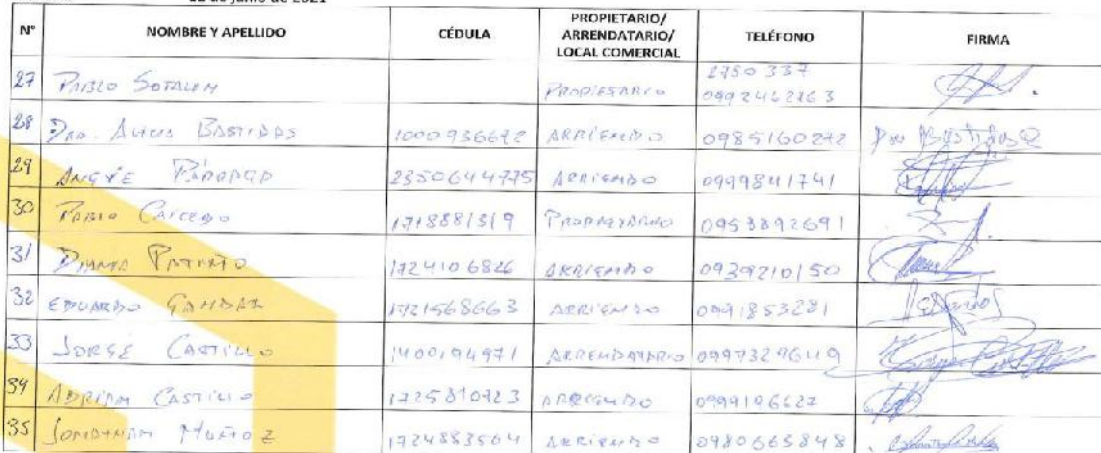 12 de junio de 2021
N° NOMBRE Y APELLIDO CÉDULA PROPIETARIO/ ARRENDATARIO/ LOCAL COMERCIAL TELÉFONO FIRMA
27 PABLO PROPIETARIO 2750337 0992462763
28 DRA. BASTIDAS 1000936672 ARRIENDO 0985160272
29 ANGYE 2350644775 ARRIENDO 0999841741
30 PABLO CAICEDO 1718881319 PROPIETARIO 0953892691
31 DIANA 1724106826 ARRIENDO 0939210150
32 EDUARDO 1721568663 ARRIENDO 0991853281
33 JORGE CASTILLO 1400194971 ARRENDATARIO 0997329649
34 ADRIAN CASTILLO ARRIENDO 0999196627
35 JONATHAN MUÑOZ 1724883564 ARRIENDO 0980665848